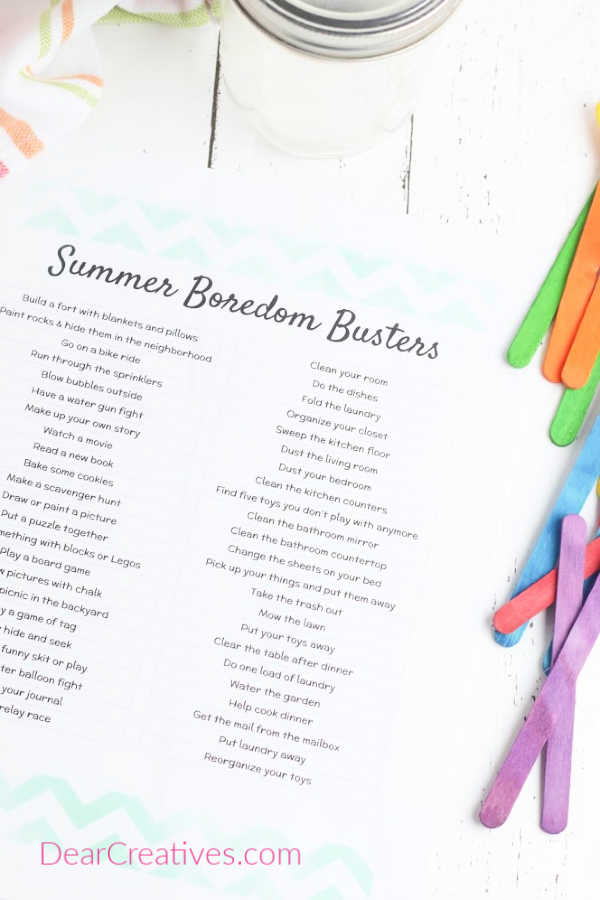 Summer Boredom Busters
Build a fort with blankets and pillows
Paint rocks & hide them in the neighborhood
Go on a bike ride
Run through the sprinklers
Blow bubbles outside
Have a water gun fight
Make up your own story
Watch a movie
Read a new book
Bake some cookies
Make a scavenger hunt
Draw or paint a picture
Put a puzzle together
with blocks or Legos
Play a board game
pictures with chalk
picnic in the backyard
a game of tag
hide and seek
funny skit or play
balloon fight
your journal
relay race
Clean your room
Do the dishes
Fold the laundry
Organize your closet
Sweep the kitchen floor
Dust the living room
Dust your bedroom
Clean the kitchen counters
Find five toys you don't play with anymore
Clean the bathroom mirror
Clean the bathroom countertop
Change the sheets on your bed
Pick up your things and put them away
Take the trash out
Mow the lawn
Put your toys away
Clear the table after dinner
Do one load of laundry
Water the garden
Help cook dinner
Get the mail from the mailbox
Put laundry away
Reorganize your toys
DearCreatives.com